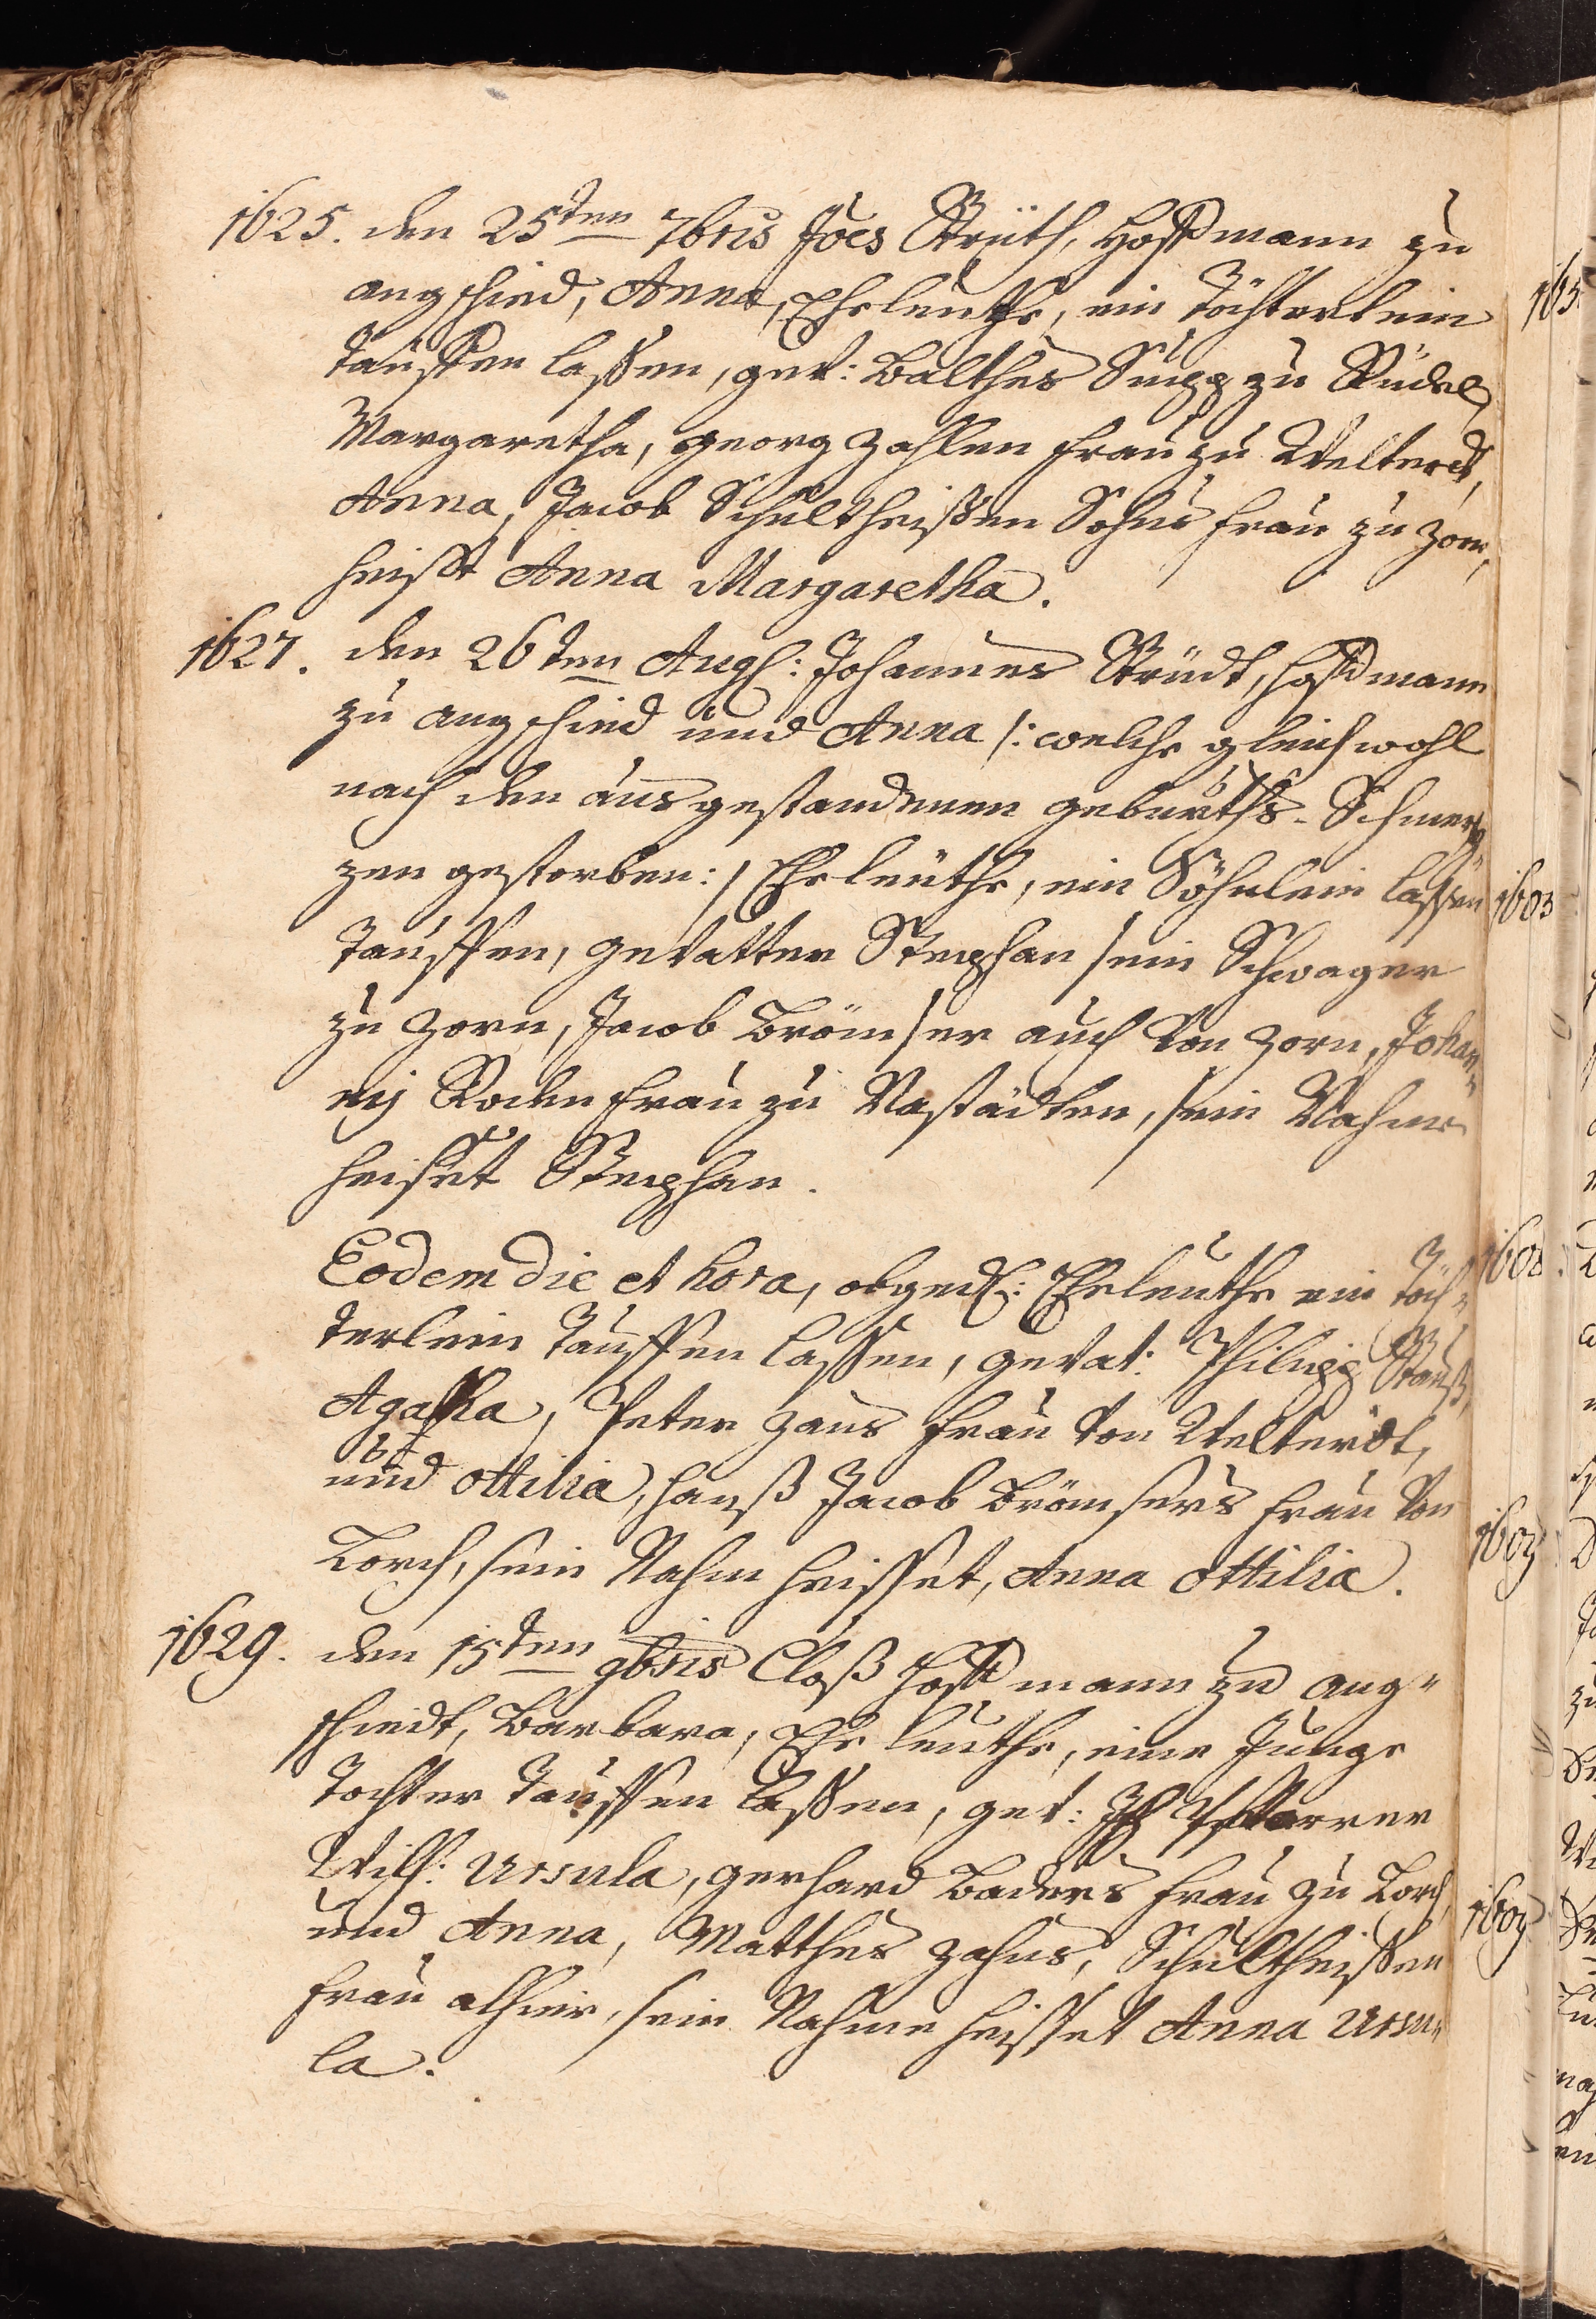 1625. den 25ten 7bris Joës Strüth, Hoffmann zu
angschied, Anna, Eheleuthe, ein Töchterlein
tauffen laßen, gev: Balthes Supp zu Rüdel,
Margaretha, georg Zahlen frau zu Welterodt,
Anna, Jacob Schultheißen Sohns frau zu Zorn,
heißt Anna Margaretha.
1627. den 26ten Aug: Johannes Strüdt, Hoffmann
zu angschied und Anna /: welche gleichwohl
nach den ausgestandenen geburths-Schmer=
zen gestorben :/ Eheleuthe, ein Söhnlein laßen
tauffen, gevatter Stephan sein Schwager
zu Zorn, Jacob Brömser auch von Zorn, Johan=
nis Roden frau zu Nastädten, sein Nahme
heiset Stephan.
Eodem die et hora, obged: Eheleuthe ein Töch=
terlein tauffen laßen, gevat: Philipp Strauß,
Agatha, Peter Hans frau von Welterodt,
und ottilia, Hanß Jacob Brömsers frau von
Lorch, sein Nahm heisset, Anna ottilia.
1629. den 15ten 9bris Cloß Hoffmann zu ang=
schiedt, Barbara, Eheleuthe, eine Junge
Tochter tauffen laßen, gev: Pfarrer
Wilh: Ursula, gerhard Baders frau zu Lorch,
und Anna, Matthes Zahns, Schultheißen
frau alhier, sein Nahme heisset Anna Ursu=
la.